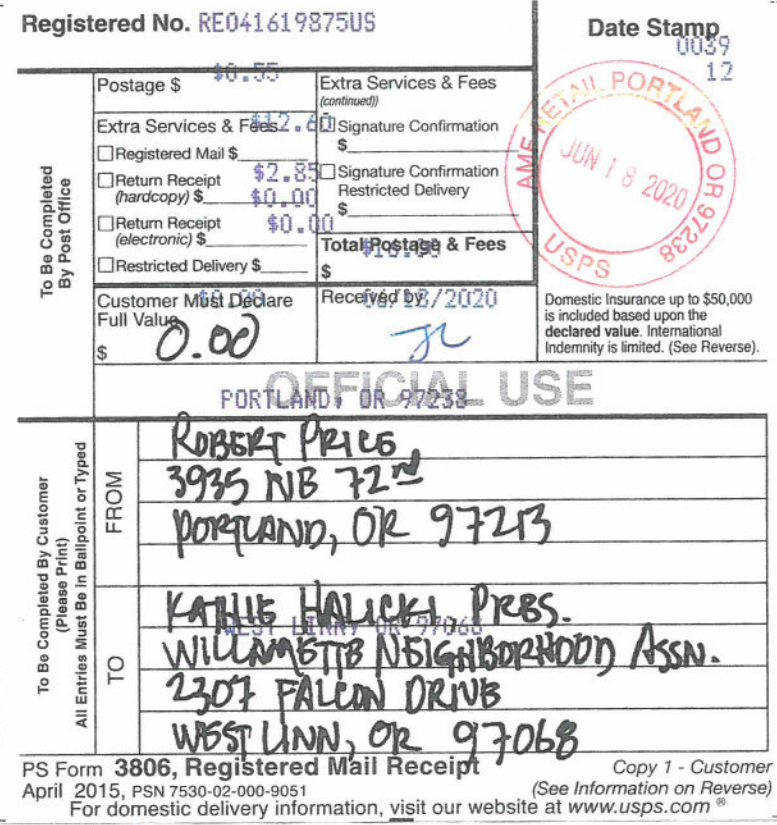 Registered No. RE041619875US
Date Stamp
0039
12
To Be Completed
By Post Office
Postage $ $0.55
Extra Services & Fees $12.60
☐Registered Mail $
☐Return Receipt $2.85
(hardcopy) $ $0.00
☐Return Receipt $0.00
(electronic) $
☐Restricted Delivery $
Extra Services & Fees
(continued))
☐Signature Confirmation
$
☐Signature Confirmation
Restricted Delivery
$
Total Postage & Fees
$
AMF RETAIL PORTLAND OR 97238
JUN 18 2020
USPS
Customer Must Declare
Full Value $0.00
$ 0.00
Received by 06/18/2020
Domestic Insurance up to $50,000
is included based upon the
declared value. International
Indemnity is limited. (See Reverse).
OFFICIAL USE
PORTLAND, OR 97238
To Be Completed By Customer
(Please Print)
All Entries Must Be in Ballpoint or Typed
FROM
ROBERT PRICE
3935 NE 72nd
PORTLAND, OR 97213
TO
KATHIE HALICKI PRES.
WEST LINN, OR 97068
WILLAMETTE NEIGHBORHOOD ASSN.
2307 FALCON DRIVE
WEST LINN, OR 97068
PS Form 3806, Registered Mail Receipt
Copy 1 - Customer
April 2015, PSN 7530-02-000-9051
(See Information on Reverse)
For domestic delivery information, visit our website at www.usps.com ®